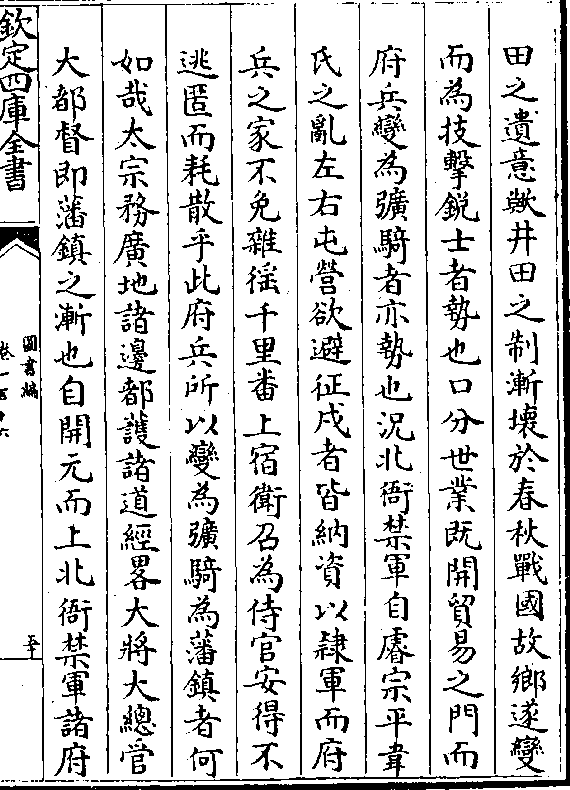 田之遺意歟井田之制漸壞於春秋戰國故鄉遂變
而為技擊銳士者勢也口分世業既開貿易之門而
府兵變為彍騎者亦勢也況北衙禁軍自睿宗平韋
氏之亂左右屯營欲避征戍者皆納資以隸軍而府
兵之家不免雜徭千里番上宿衛召為侍官安得不
逃匿而耗散乎此府兵所以變為彍騎為藩鎮者何
如哉太宗務廣地諸邊都護諸道經畧大將大總管
大都督即藩鎮之漸也自開元而上北衙禁軍諸府
欽定四庫全書
圖書編
卷一百十六